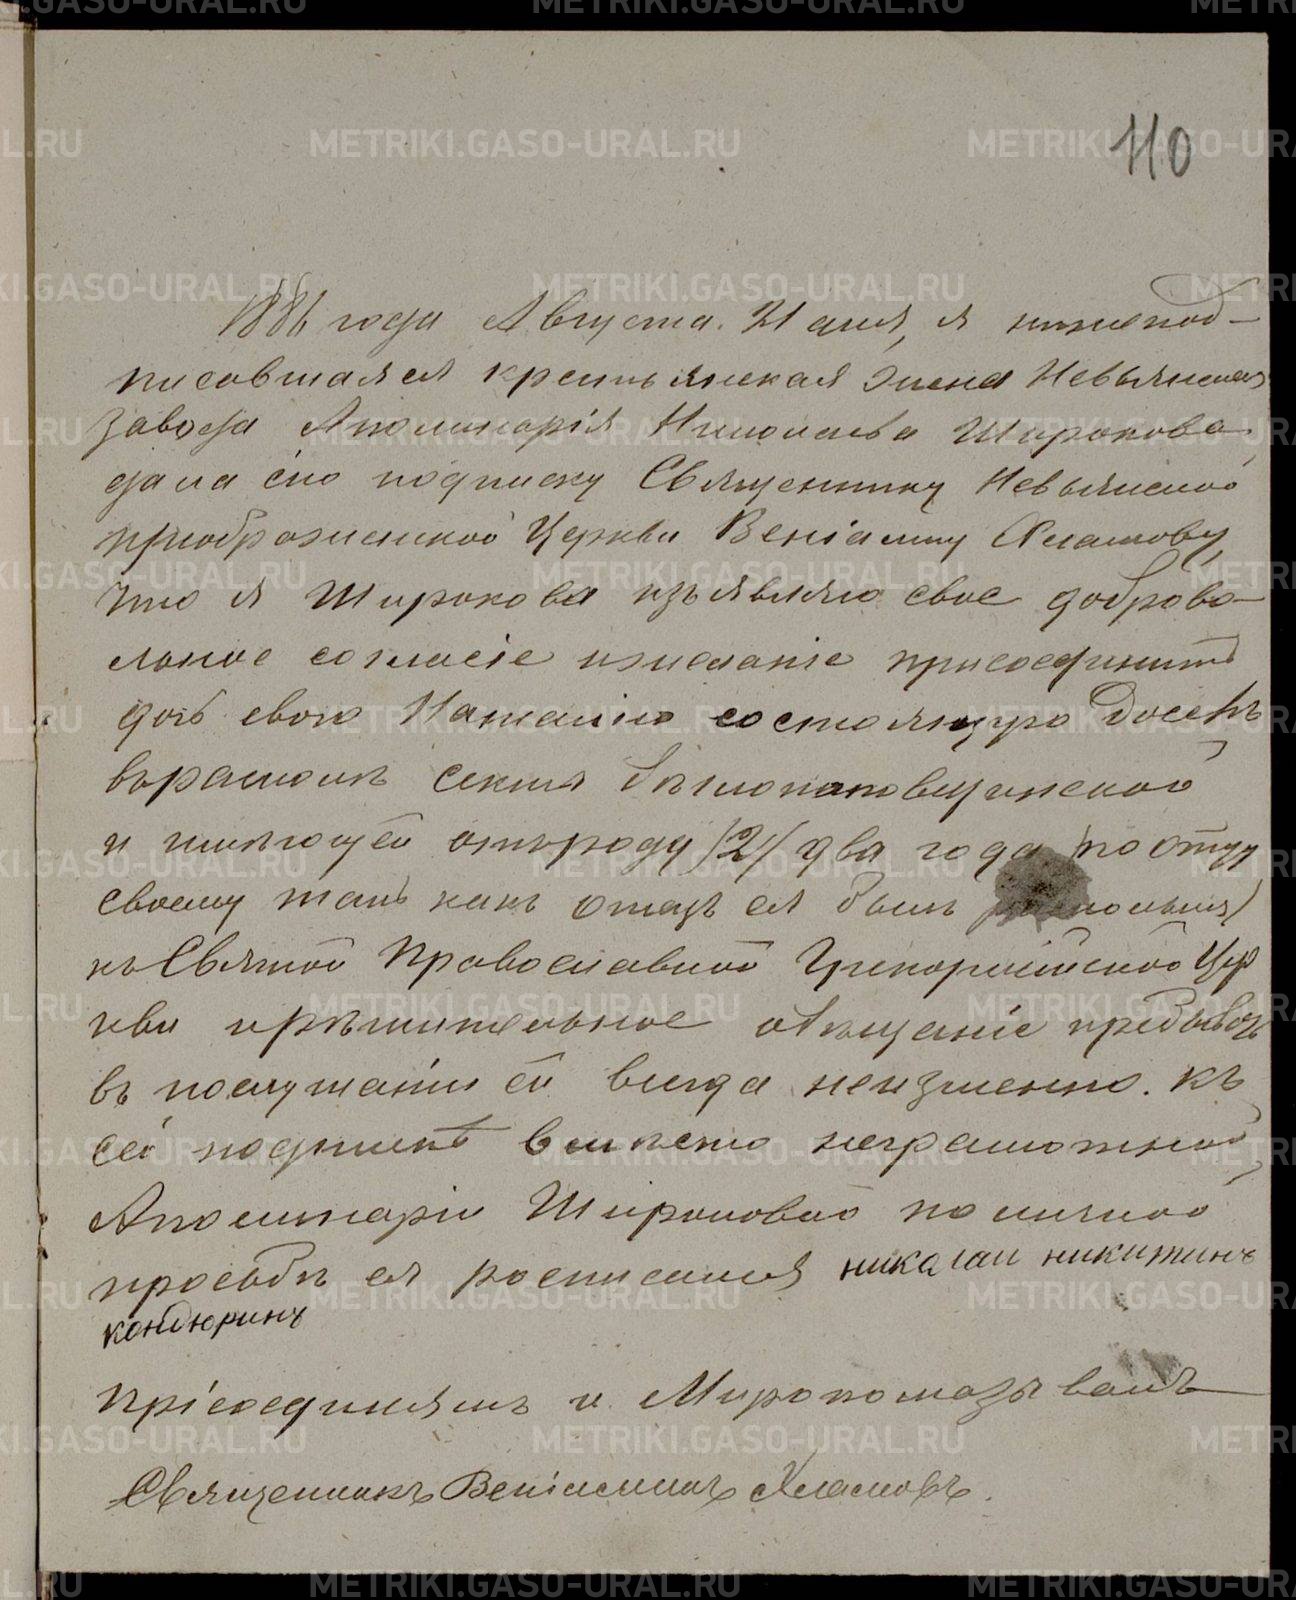 110
1886 года Августа 21 дня, я нижепод-
писавшаяся крестьянская жена Невьянскаго
завода Аполинарія Николаева Широкова,
дала сію подписку Священнику Невьянской
приображенской Церкви Веніамину Хламову,
что я Широкова изъявляю свое доброво-
льное согласіе и желаніе присоединить
дочь свою Наталію состоящую доселѣ
въ секты бѣглопоповщинской
и имѣющей отъ роду /2/ два года /по отцу
своему такъ какъ отецъ ея былъ
къ Святой Православной Грекоросійской Цер
кви и рѣшительное обѣщаніе пребывать
въ послушаніи ей всегда неизменно. Къ
сей подпискѣ вмѣсто неграмотной
Аполинаріи Широковой по личной
просьбѣ ея росписался николаи никитинъ
кондюринъ
Присоединялъ и Миропомазывалъ
Священникъ Веніаминъ Хламовъ.
METRIKI.GASO-URAL.RU